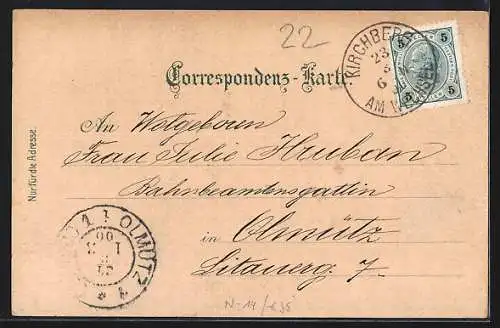 22
Correspondenz-Karte
KIRCHBERG
AM WECHSEL
23
6
5 5
5 5
An Wolgeboren
Frau Julie Hruban
Bahnbeamtensgattin
in Olmütz
Litauerg. 7
Nur für die Adresse.
OLMÜTZ 1
00
N-14/€35